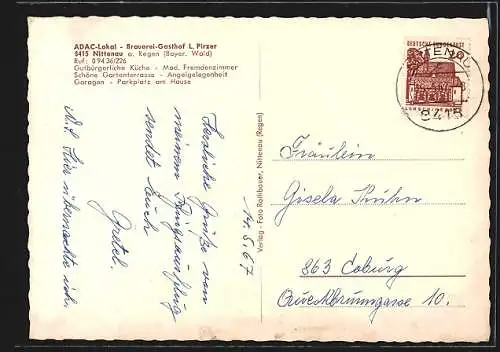 ADAC-Lokal - Brauerei-Gasthof L. Pirzer
8415 Nittenau a. Regen (Bayer. Wald)
Ruf: 0 94 36/226
Gutbürgerliche Küche - Mod. Fremdenzimmer
Schöne Gartenterrasse - Angelgelegenheit
Garagen - Parkplatz am Hause
Herzliche Grüße von
meinem
sendet Euch
Gretel.
N.B. Hier übernachte ich.
14.5.67
Verlag - Foto Rathbauer, Nittenau (Regen)
DEUTSCHE BUNDESPOST
NITTENAU
8415
Fräulein
Gisela Kuhn
863 Coburg
Querkbrunngasse 10.